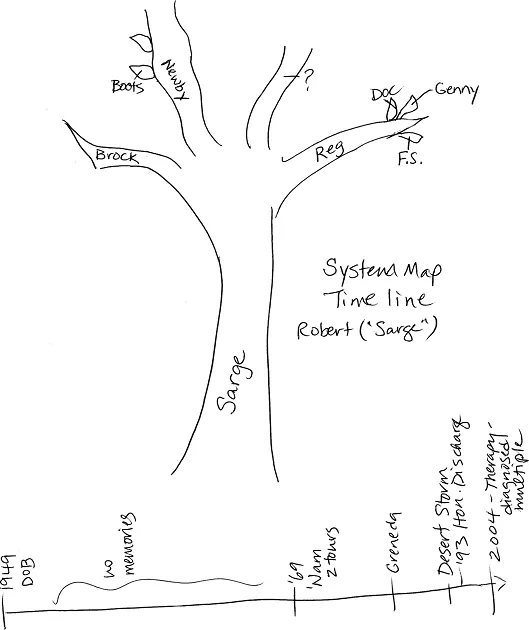 Boots
Newby
?
Doc
Genny
Brock
Reg
F.S.
System Map
Time line
Robert ("Sarge")
Sarge
1949
DOB
no
memories
'69
'Nam
2 tours
Greneda
Desert Storm
'93 Hon. Discharge
2004 - Therapy -
diagnosed
multiple